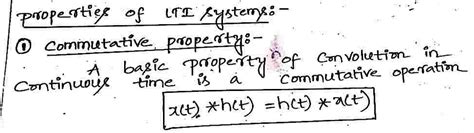 properties of LTI systems:-
① commutative property:-
A basic property of convolution in
continuous time is a commutative operation
x(t) *h(t) =h(t) * x(t)